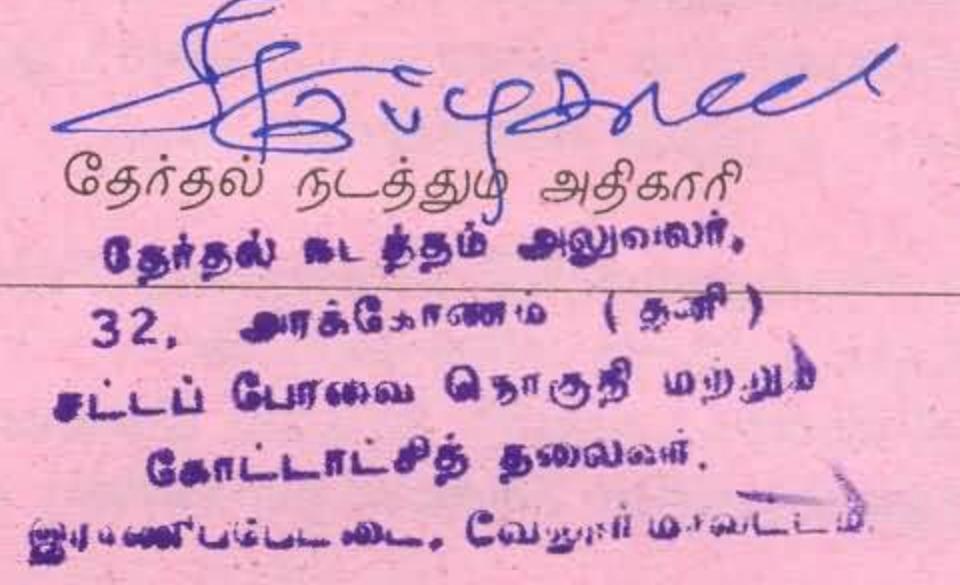 தேர்தல் நடத்தும் அதிகாரி
தேர்தல் நடத்தம் அலுவலர்,
32, அரக்கோணம் (தனி)
சட்டப் பேரவை தொகுதி மற்றும்
கோட்டாட்சித் தலைவர்.
இராணிப்பேட்டை, வேலூர் மாவட்டம்.